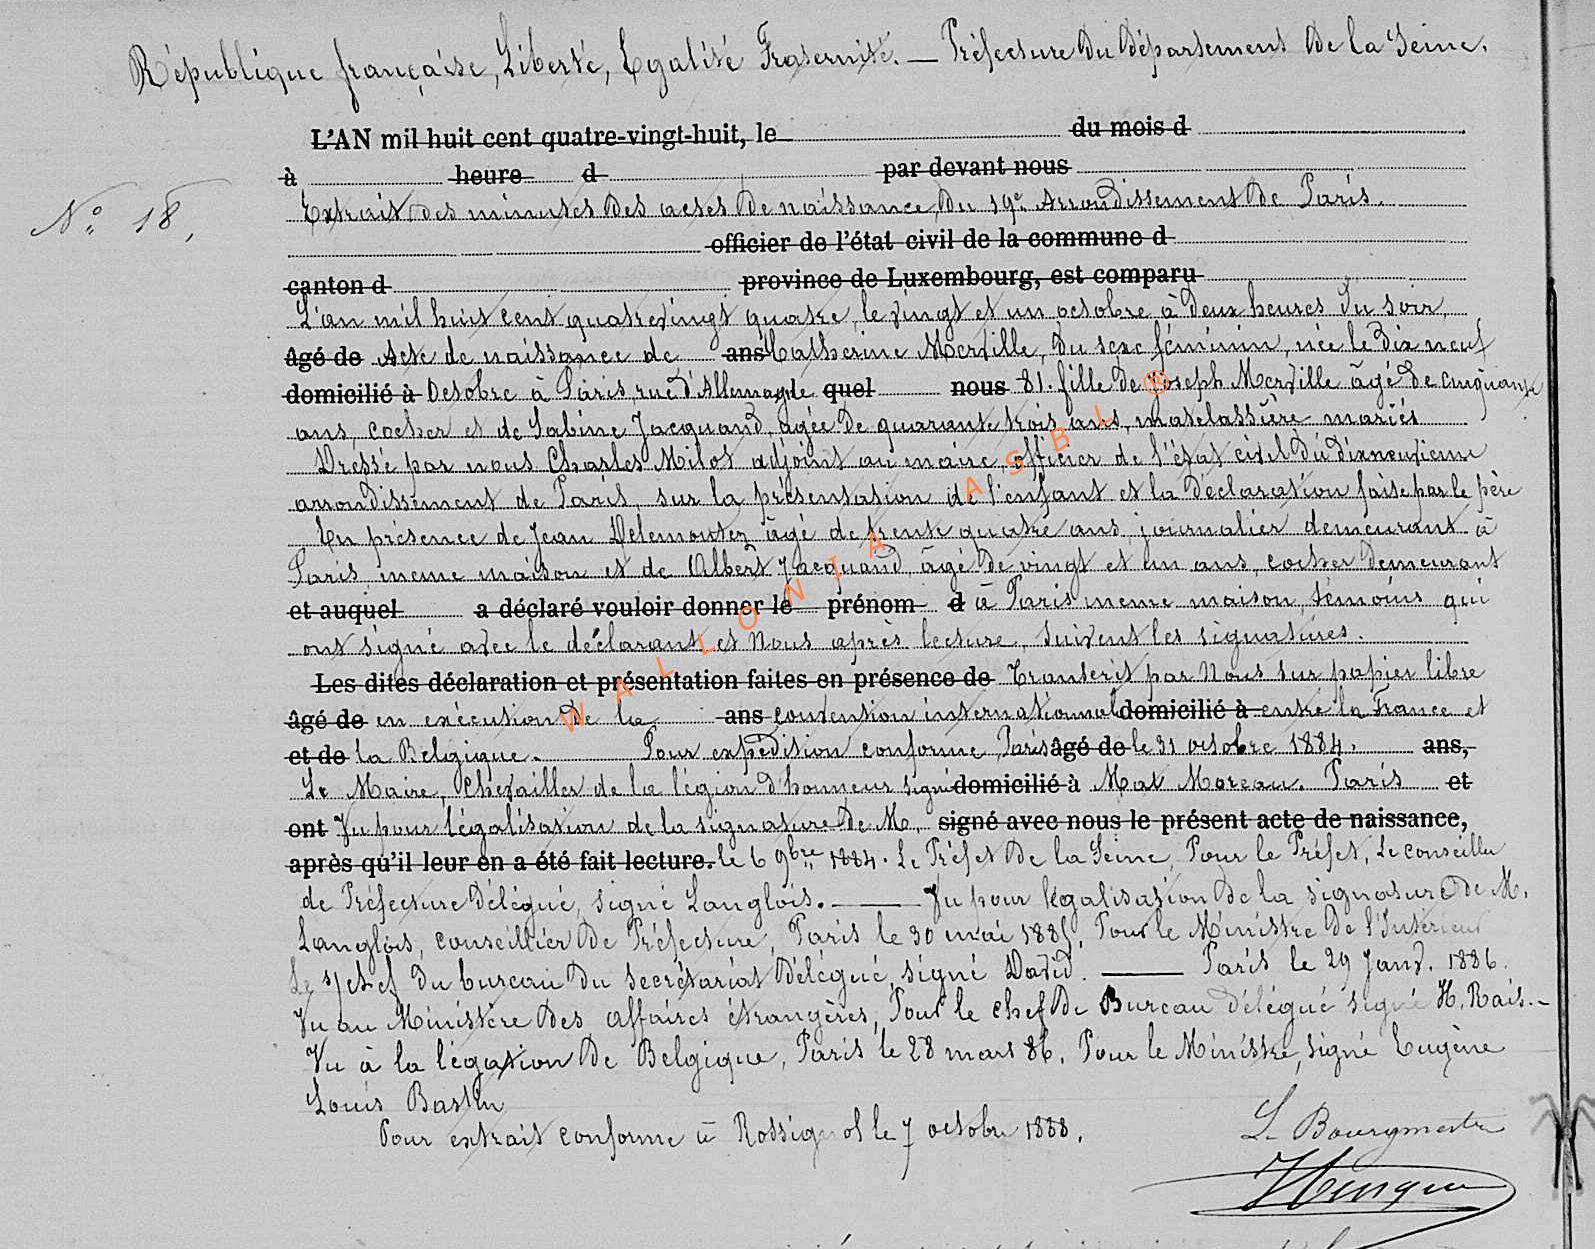 République française, Liberté, Egalité Fraternité. — Préfecture du Département de la Seine.
L'AN mil huit cent quatre-vingt-huit, le du mois d
à heure d par devant nous
N° 18,
Extrait des minutes des actes de naissance du 19e Arrondissement de Paris.
officier de l'état civil de la commune d
canton d province de Luxembourg, est comparu
L'an mil huit cent quatrevingt quatre, le vingt et un octobre à deux heures du soir,
âgé de Acte de naissance de ans Catherine Merville, du sexe féminin, née le dix neuf
domicilié à octobre à Paris, rue d'Allemagne quel nous 81. fille de Joseph Merville âgé de cinquante
ans, cocher et de Sabine Jacquand, agée de quarante trois ans, matelassière mariés
Dressé par nous Charles Milot adjoint au maire, officier de l'état civil du dixneuvieme
arrondissement de Paris, sur la présentation de l'enfant et la déclaration faite par le père
En présence de Jean Delemontez âgé de trente quatre ans, journalier demeurant à
Paris meme maison et de Albert Jacquand, âgé de vingt et un ans, cocher demeurant
et auquel a déclaré vouloir donner le prénom d à Paris meme maison, témoins qui
ont signé avec le déclarant et Nous après lecture. Suivent les signatures.
Les dites déclaration et présentation faites en présence de Transcrit par Nous sur papier libre
âgé de en exécution de la ans convention international domicilié à entre la France et
et de la Belgique. Pour expédition conforme, Paris âgé de le 31 octobre 1884. ans,
Le Maire, Chevailler de la légion d'honneur signé domicilié à Mat Moreau. Paris et
ont Vu pour légalisation de la signature de M. signé avec nous le présent acte de naissance,
après qu'il leur en a été fait lecture. le 6 9bre 1884. Le Préfet de la Seine, Pour le Préfet, Le conseiller
de Préfecture délégué, signé Langlois. — Vu pour légalisation de la signature de M.
Langlois, conseillier de Préfecture, Paris le 30 mai 1885, Pour le Ministre de l'Intérieur
Le chef du bureau du secrétariat délégué, signé David. — Paris le 29 Janv. 1886.
Vu au Ministère des affaires étrangères, Pour le chef de Bureau délégué signé H. Rais. -
Vu à la légation de Belgique, Paris le 28 mars 86. Pour le Ministre, signé Eugène
Louis Bastin
Pour extrait conforme à Rossignol le 7 octobre 1888.
Le Bourgmestre
WALLONIA ASBL ®